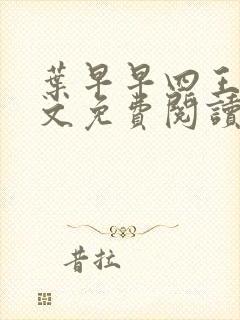 葉早早四王
文免費閱讀
昔拉